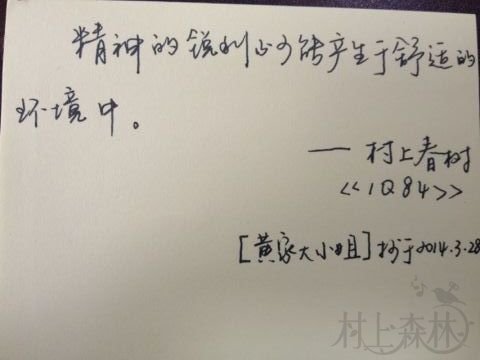 精神的锐利不可能产生于舒适的
环境中。
— 村上春树
<<1Q84>>
[黄家大小姐]抄于2014.3.28
村上森林